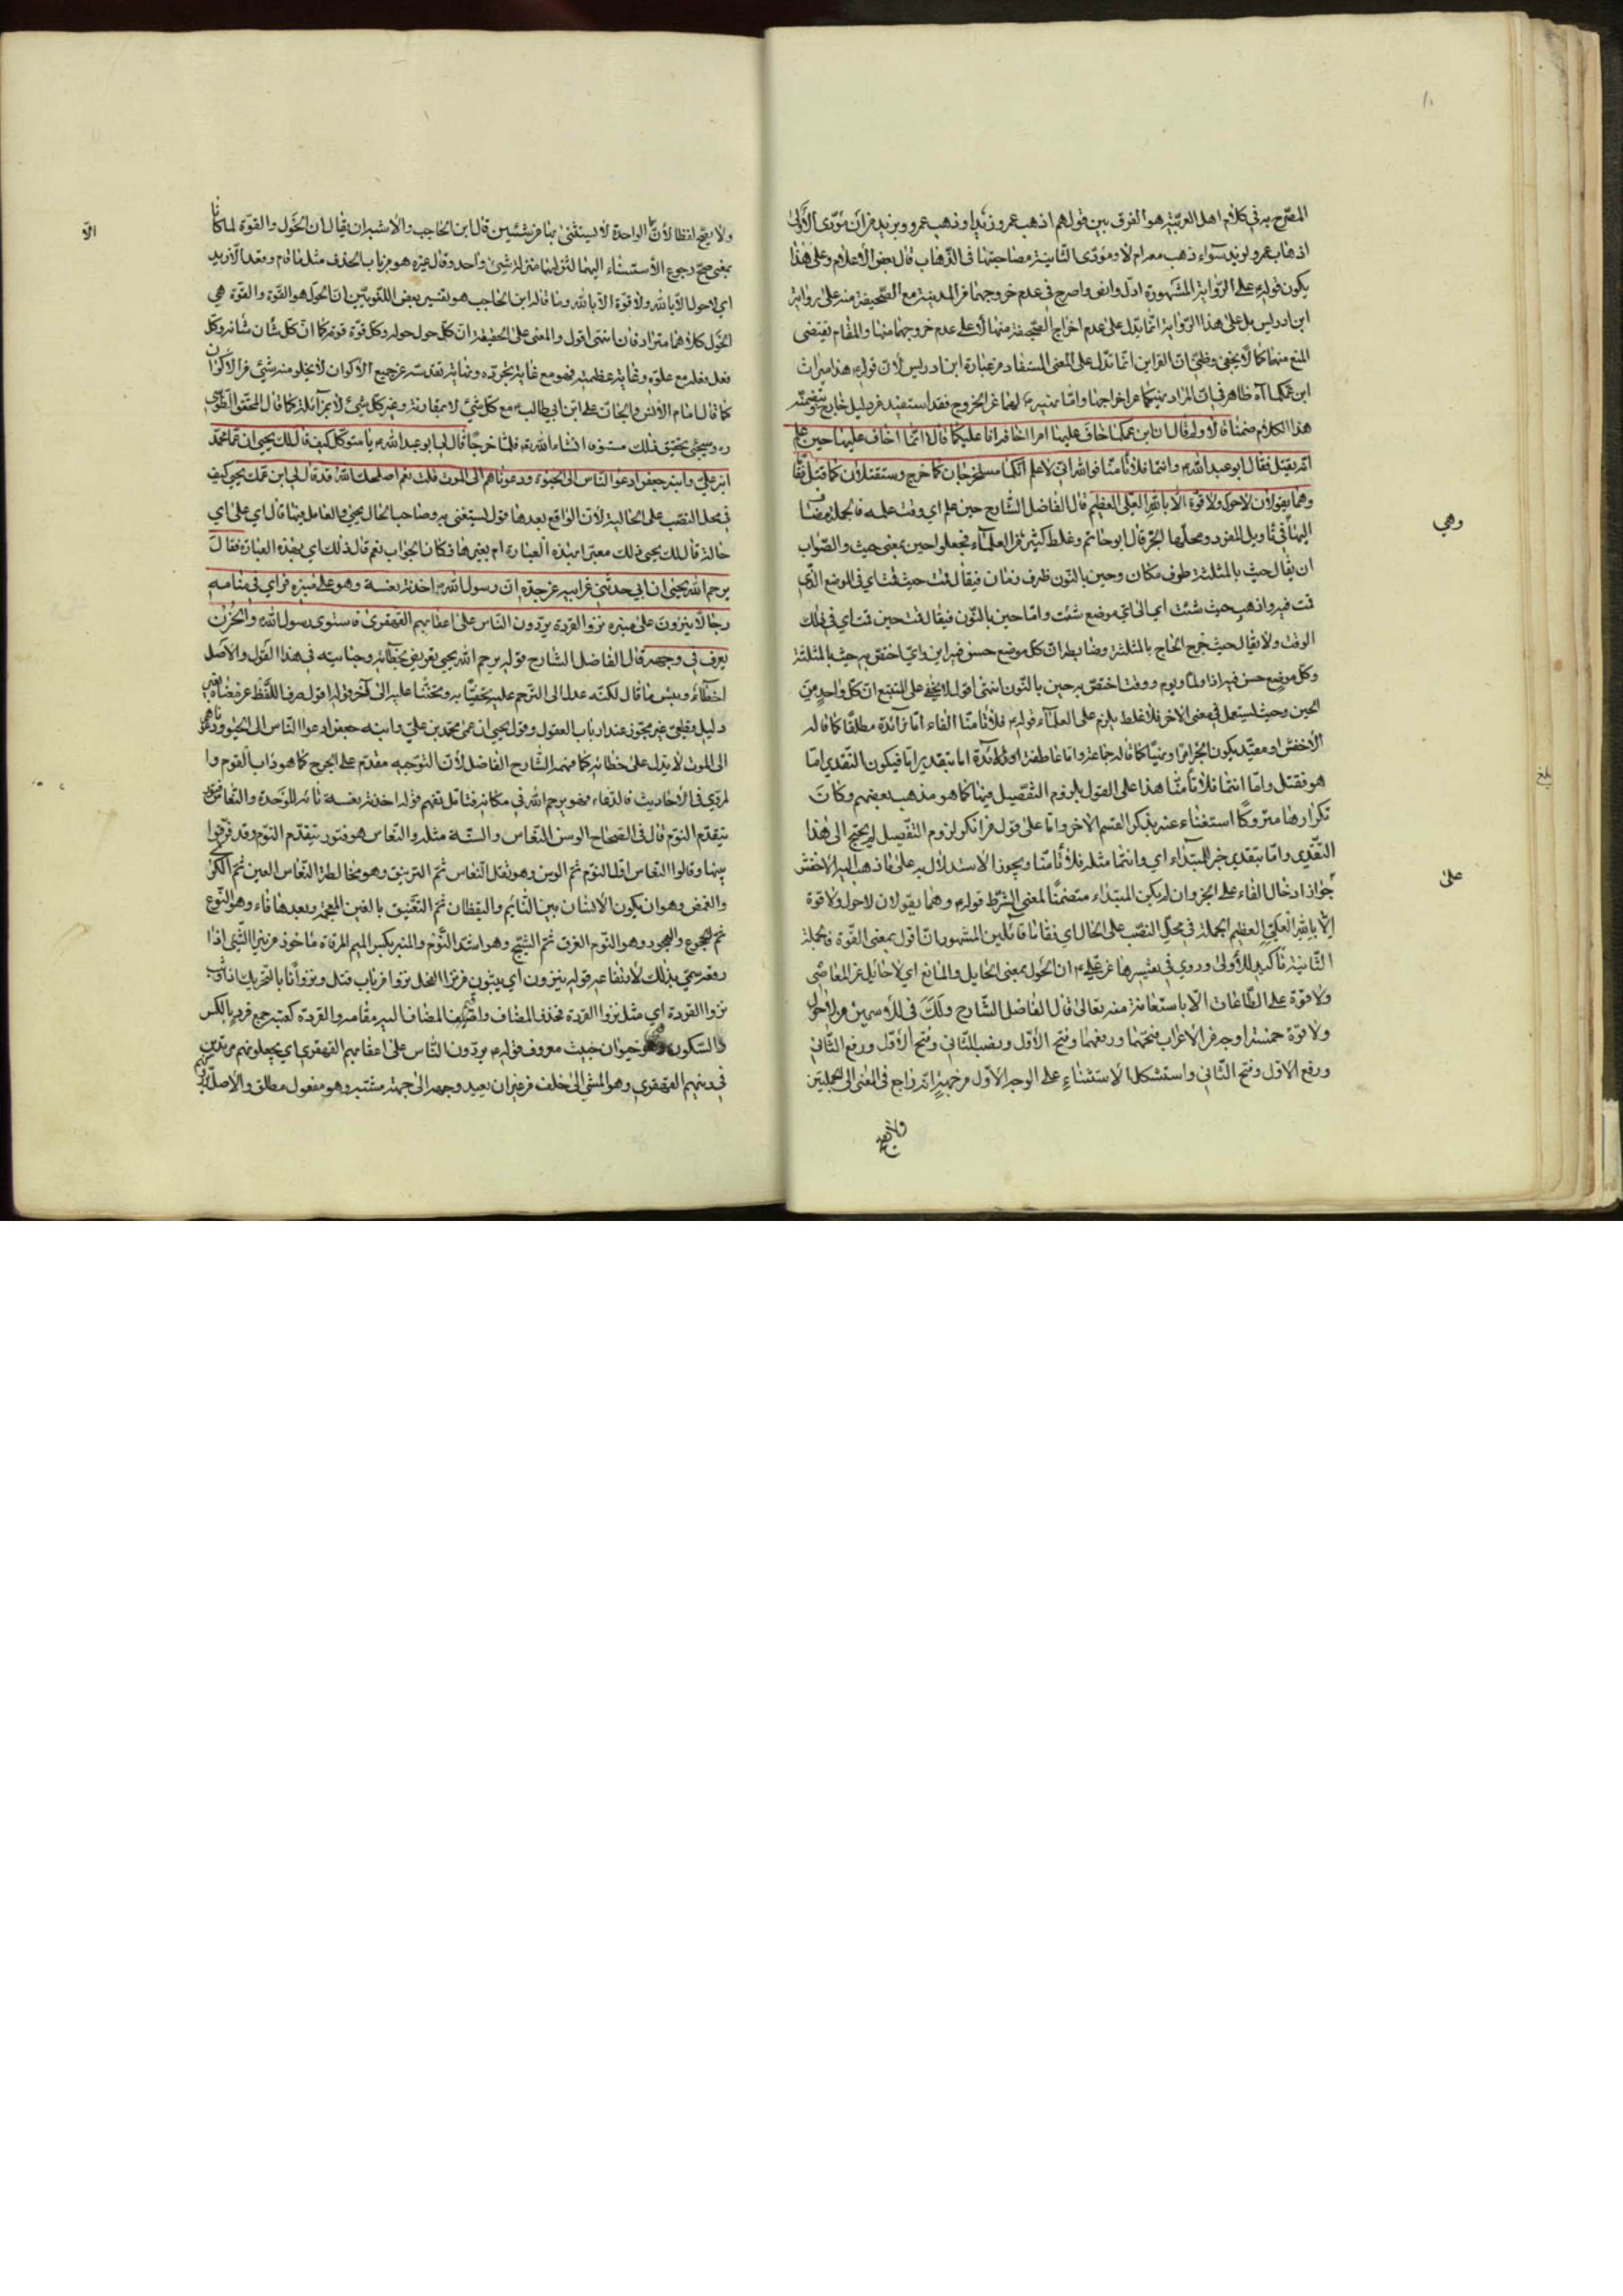 المصرّح به في كلام اهل العربيّة هو الفرق بين قولهم اذهب عمرو زيدا وذهب عمرو وبزيد فان مؤدّى الأولى
اذهاب عمرو لزيد سواء ذهب معه ام لا ومؤدّى الثانية مصاحبتهما فى الذّهاب قال بعض الأعلام وعلى هذا
يكون قوله على الرّواية المشهورة ادلّ وانصّ واصرح في عدم خروجهما من المدينة مع الصّحيفة منه على رواية
ابن ادريس بل على هذا الرّواية انّما يدلّ على عدم اخراج الصّحيفة منها لا على عدم خروجهما منها والمقام يقتضى
المنع منهما كما لا يخفى وظنّي انّ القراين انّما تدلّ على المعنى المستفاد من عبارة ابن ادريس لانّ قوله هذا ميراث
ابن عمّكما آه ظاهر في انّ المراد منهيكما عن اخراجها وامّا نهيه لهما عن الخروج فقد استفيد من دليل خارج
هذا الكلام ضمنا قالا ولم قال ان ابن عمكما خاف عليها امرا اخافه انا عليكما قالا انّما خاف عليها حين علم
انّه يقتل فقال ابو عبد الله وانتما فلا تأمنا فوالله انّى لاعلم انّكما ستخرجان كما خرج وستقتلان كما قتل فقاما
وهما يقولان لا حول ولا قوّة الّا بالله العليّ العظيم قال الفاضل الشّارح حين علم اي وقت علمه فالجملة مضاف
اليها في تأويل المفرد ومحلّها الجرّ قال ابو حاتم وغلط كثير من العلماء فجعلوا حين بمعنى حيث والصّواب
ان يقال حيث بالمثلثة ظرف مكان وحين بالنون ظرف زمان فيقال قمت حيث قمت اي في الموضع الذي
قمت فيه واذهب حيث شئت اي الى ايّ موضع شئت وامّا حين بالنّون فيقال قمت حين قمت اي في ذلك
الوقت ولا يقال حيث خرج الحاج بالمثلثة وضابطه انّ كلّ موضع حسن فيه اين وايّ اختصّ به حيث بالمثلثة
وكلّ موضع حسن فيه اذا ولمّا ويوم ووقت اختصّ به حين بالنّون انتهى اقول لا يخفى على المتتبع انّ كلّ واحد من
الحين وحيث يستعمل في معنى الاخر فلا غلط يلزم على العلماء قوله فلا تأمنا الفاء امّا زائدة مطلقا كما قاله
الأخفش او مقيّد بكون الخبر امرا ونهيا كما قاله جماعة وامّا عاطفة او زائدة اما بتقدير امّا فيكون التقدير امّا
هو فقتل وامّا انتما فلا تأمنّا هذا على القول بلزوم التّفصيل فيها كما هو مذهب بعضهم وكان
تكرارها متروكا استغناء عنه بذكر القسم الاخر وامّا على قول من انكر لزوم التّفصيل لم يحتج الى هذا
التّقدير وامّا بتقدير خبر المبتداء اي وانتما مثله فلا تأمنّا ويجوز الاستدلال به على ما ذهب اليه الاخفش
جواز ادخال الفاء على الخبر وان لم يكن المبتداء متضمّنا لمعنى الشّرط قوله وهما يقولان لا حول ولا قوة
الّا بالله العليّ العظيم الجملة فى محلّ النصب على الحال اي فقاما قائلين المشهور انّا نقول بمعنى القوّة فالجملة
الثّانية تأكيد للأولى وروي في تفسيرها عن عليّ انّ الحول بمعنى الحايل والمانع اي لا حائل عن المعاصى
ولا قوّة على الطّاعات الّا باستعانة منه تعالى قال الفاضل الشّارح ولك في الاسمين من لا حول
ولا قوّة خمسة اوجه من الاعراب فتحهما ورفعهما وفتح الأوّل ونصب الثّاني وفتح الأوّل ورفع الثّاني
ورفع الاوّل وفتح الثّاني واستشكل الاستثناء على الوجه الاول من جهة انّه راجع فى المعنى الى الجملتين
وهي
على
بلغ
ولا يصحّ لفظا لأنّ الّا الواحدة لا يستثنى بها من شيئين قال ابن الحاجب والاشبه ان يقال ان الحول والقوّة لما كانا
بمعنى صحّ رجوع الاستثناء اليهما لتنزلهما منزلة شيئ واحد وقال غيره هو من باب الحذف مثل ما قام وقعد الّا زيد
اي لا حول الّا بالله ولا قوّة الّا بالله وما قاله ابن الحاجب هو تفسير بعض اللغويّين انّ الحول هو القوّة والقوّة هي
الحول كلاهما مترادفان انتهى اقول والمعنى على الحقيقة انّ كلّ حول حوله وكلّ قوّة قوّته كما انّ كلّ شأن شأنه وكلّ
فعل فعله مع علوّه وغاية عظمته فهو مع غاية تجرّده ونهاية تقدّسه عن جميع الأكوان لا يخلو منه شئ من الاكوان
كما قال امام الأنس والجانّ علي ابن أبي طالب مع كلّ شيئ لا بمقارنة وغير كلّ شيئ لا بمزايلة كما قال المحقّق الطّوسي
ره وسيجئ تحقيق ذلك مستوفى انشاء الله تع فلمّا خرجا قال لي ابو عبد الله يا متوكّل كيف قال لك يحيى ان عمّي محمّد
ابن عليّ وابنه جعفر ادعوا النّاس الى الحيوة ودعوناهم الى الموت قلت نعم اصلحك الله قد قال لي ابن عمّك يحيى كيف
في محل النصب على الحالية لأنّ الواقع بعدها قول يستغنى به وصاحب الحال يحيى والعامل فيها قال اي على اي
حالة قال لك يحيى ذلك معبّرا بهذه العبارة ام بغيرها فكان الجواب نعم قال ذلك اي بهذه العبارة فقال
يرحم الله يحيى ان ابي حدّثني عن ابيه عن جدّه انّ رسول الله اخذته نعسة وهو على منبره فراى في منامه
رجالا ينزون على منبره نزو القردة يردّون النّاس على اعقابهم القهقرى فاستوى رسول الله والحزن
يعرف في وجهه قال الفاضل الشّارح قوله يرحم الله يحيى تعريض بخطائه وجنايته في هذا القول والاصل
اخطاء وبئس ما قال لكنّه عدل الى الترحّم عليه الى آخر قوله اقول صرف اللّفظ عن مضاه بغير
دليل قطعيّ غير مجوّز عند ارباب العقول وقول يحيى ان عمّي محمّد بن عليّ وابنه جعفر ادعوا النّاس الى الحيوة ودعوناهم
الى الموت لا يدلّ على خطائه كما فهمه الشّارح الفاضل لأنّ التوجيه مقدّم على الجرح كما هو داب القوم وا
لمرويّ في الأحاديث فالدّعاء فهو يرحم الله في مكانه فتأمّل تفهم قوله اخذته نعسة تائه للوحدة والنّعاس فتور
يتقدّم النوم قال في الصّحاح الوسن النّعاس والسّنة مثله والنّعاس هو فتور يتقدّم النّوم وقد فرّقوا
بينها وقالوا النّعاس اوّل النّوم ثمّ الوسن وهو ثقل النّعاس ثمّ الترنيق وهو مخالطة النّعاس العين ثمّ الكرى
والغمض وهو ان يكون الأنسان بين النّائم واليقظان ثمّ التغفيق بالغين المعجمة وبعدها فاء وهو النّوع
ثمّ الهجوع والهجود وهو النّوم الغرق ثمّ التّسبيخ وهو اشدّ النّوم والمنبر بكسر الميم المرقاة مأخوذ من نبر الشّئ اذا
رفعه سمّي بذلك لارتفاعه قوله ينزون اي يثبون من نزا الفحل نزوا من باب قتل ونزوانا بالتحريك اذا وثب
نزو القردة اي مثل نزو القردة فحذف المضاف واقيم المضاف اليه مقامه والقردة كعنبه جمع قرد بالكسر
فالسّكون وهو حيوان خبيث معروف قوله يردّون النّاس على اعقابهم القهقرى اي يجعلونهم مرتدّين
في دينهم القهقرى وهو المشي الى خلف من غير ان يعيد وجهه الى جهة مشيه وهو مفعول مطلق والأصل
الّا